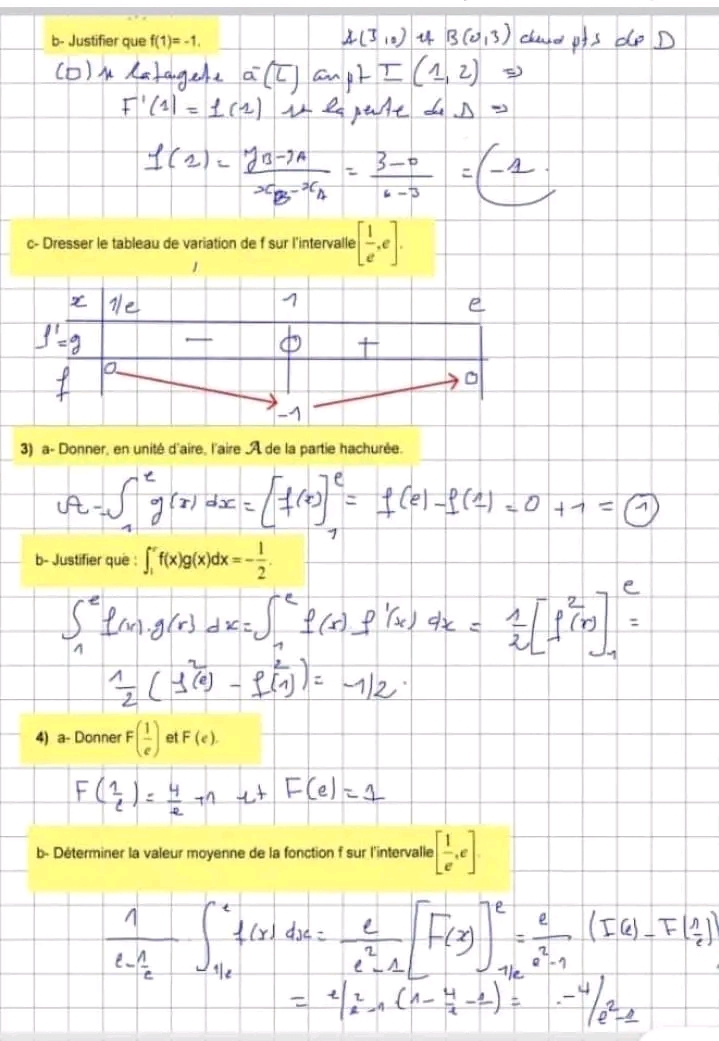 b- Justifier que f(1)= -1.
A(3,0) et B(0,3) deux pts de D
(D) la tagente à (C) au pt I (1, 2) ⇒
F'(1) = f(1) est la pente de D ⇒
f(1) = (yB - yA)/(xB - xA) = (3-0)/(0-3) = -1.
c- Dresser le tableau de variation de f sur l'intervalle [1/e, e].
x 1/e 1 e
f'=g — 0 +
f 0 -1 0
3) a- Donner, en unité d'aire, l'aire A de la partie hachurée.
A = ∫₁ᵉ g(x) dx = [f(x)]₁ᵉ = f(e) - f(1) = 0 + 1 = 1
b- Justifier que : ∫₁ᵉ f(x)g(x)dx = -1/2.
∫₁ᵉ f(x).g(x) dx = ∫₁ᵉ f(x) f'(x) dx = 1/2 [f²(x)]₁ᵉ =
1/2 (f²(e) - f²(1)) = -1/2.
4) a- Donner F(1/e) et F (e).
F(1/e) = 4/e +1 et F(e) = 1
b- Déterminer la valeur moyenne de la fonction f sur l'intervalle [1/e, e].
1/(e - 1/e) ∫_{1/e}^e f(x) dx = e/(e²-1) [F(x)]_{1/e}^e = e/(e²-1) (F(e) - F(1/e))
= e/(e²-1) (1 - 4/e - 1) = -4/(e²-1)